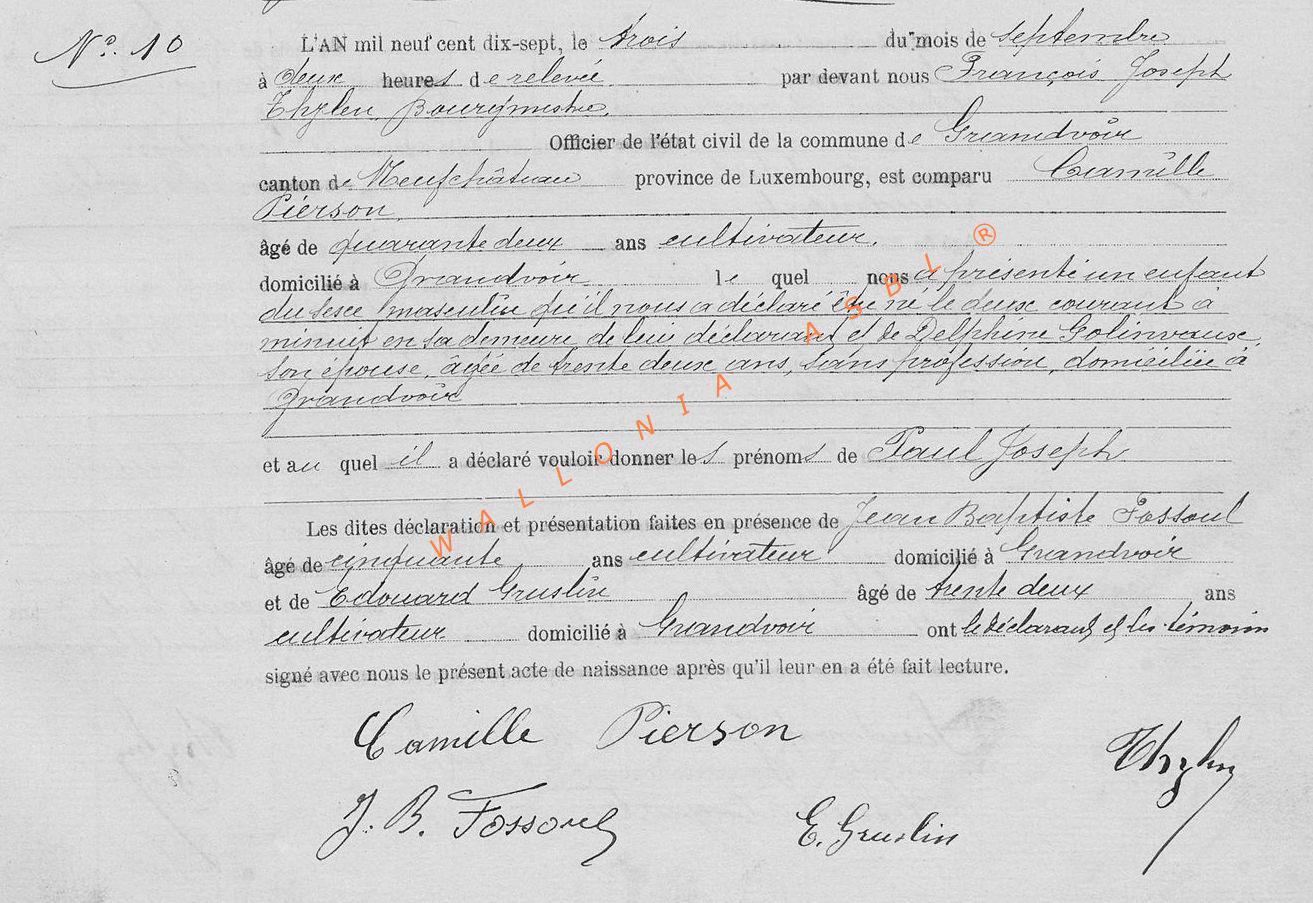 N° 10
L'AN mil neuf cent dix-sept, le trois du mois de septembre
à deux heures de relevée par devant nous François Joseph
Thylen, Bourgmestre,
Officier de l'état civil de la commune de Grandvoir
canton de Neufchâteau province de Luxembourg, est comparu Camille
Pierson
âgé de quarante deux ans cultivateur,
domicilié à Grandvoir le quel nous a présenté un enfant
du sexe masculin qu'il nous a déclaré être né le deux courant à
minuit en sa demeure de lui déclarant et de Delphine Golinvaux,
son épouse, âgée de trente deux ans, sans profession, domiciliée à
Grandvoir
et au quel il a déclaré vouloir donner les prénoms de Paul Joseph
Les dites déclaration et présentation faites en présence de Jean Baptiste Fossoul
âgé de cinquante ans cultivateur domicilié à Grandvoir
et de Edouard Gruslin âgé de trente deux ans
cultivateur domicilié à Grandvoir ont le déclarant et les témoins
signé avec nous le présent acte de naissance après qu'il leur en a été fait lecture.
Camille Pierson
Thylen
J. B. Fossoul
E. Gruslin
WALLONIA ASBL ®